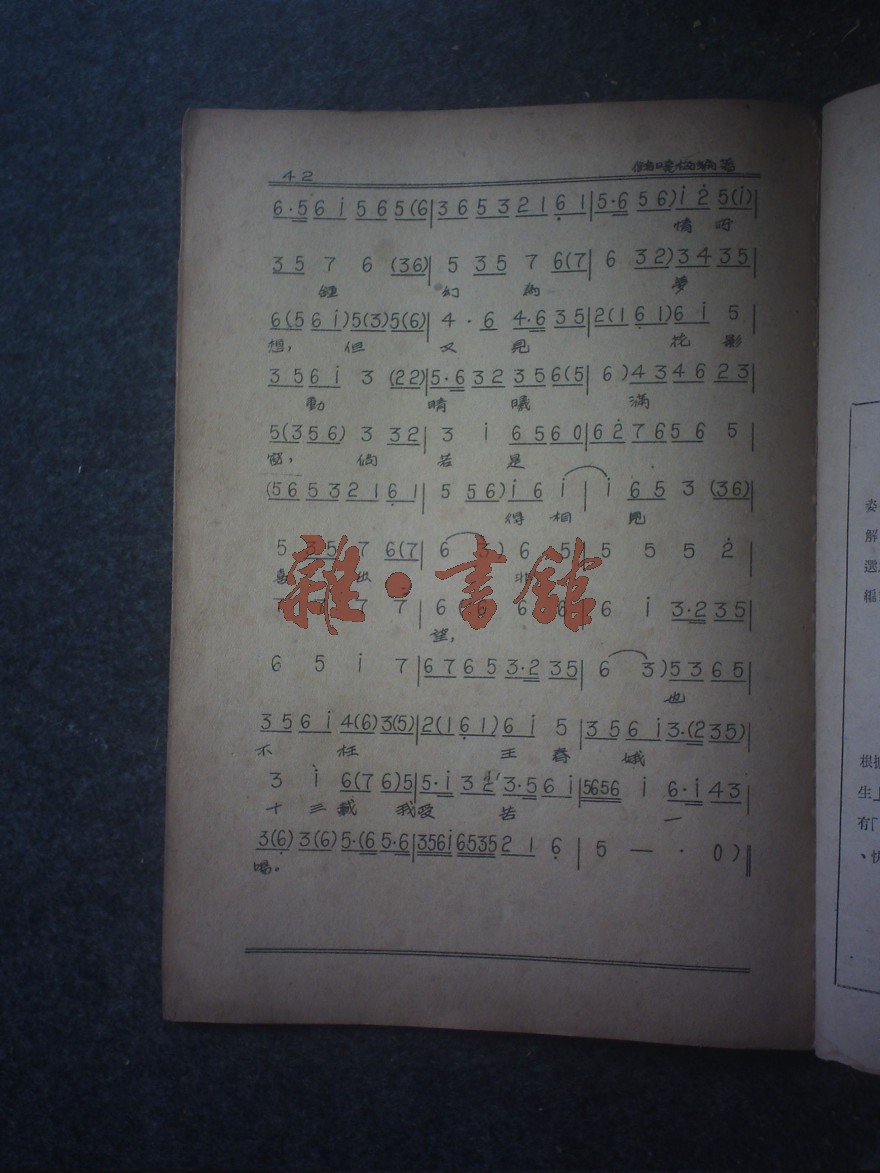 42
6·56i 565(6|365321 61|5·6 56)i 2 5(i)|
情 呀
35 7 6 (36)|5 35 7 6(7|6 32)34 35|
鍾 幻 夢
6(5 6i)5(3)5(6)|4·6 4·6 35|2(1 61)6i 5|
想, 但 又 見 花 影
356i 3 (22)|5·6 32 356(5|6)43 46 23|
動 晴 曦 滿
5(356) 3 32|3 i 6560|62 7656 5|
窗, 倘 若 是
(56 53 21 61|5 56)i6 i|i 65 3 (36)|
得 相 見
5 35 7 6(7|6 3)6 5|5 5 5 2|
雜·書舘
7 7 7|6 6 6|6 i 3·2 35|
望,
6 5 i 7|6765 3·2 35|6 3)53 65|
也
356i 4(6)3(5)|2(1 61)6i 5|356i 3·(2 35)|
不 枉 王 春 娥
3 i 6(76)5|5·i 32 3·5 6i|5656 i 6·i 43|
十 三 載 我 愛 苦 一
3(6)3(6)5·(6 5·6|356i 6535 21 6|5 — · 0)|
場。
姿
解
選
編
根據
生上
有「
、快